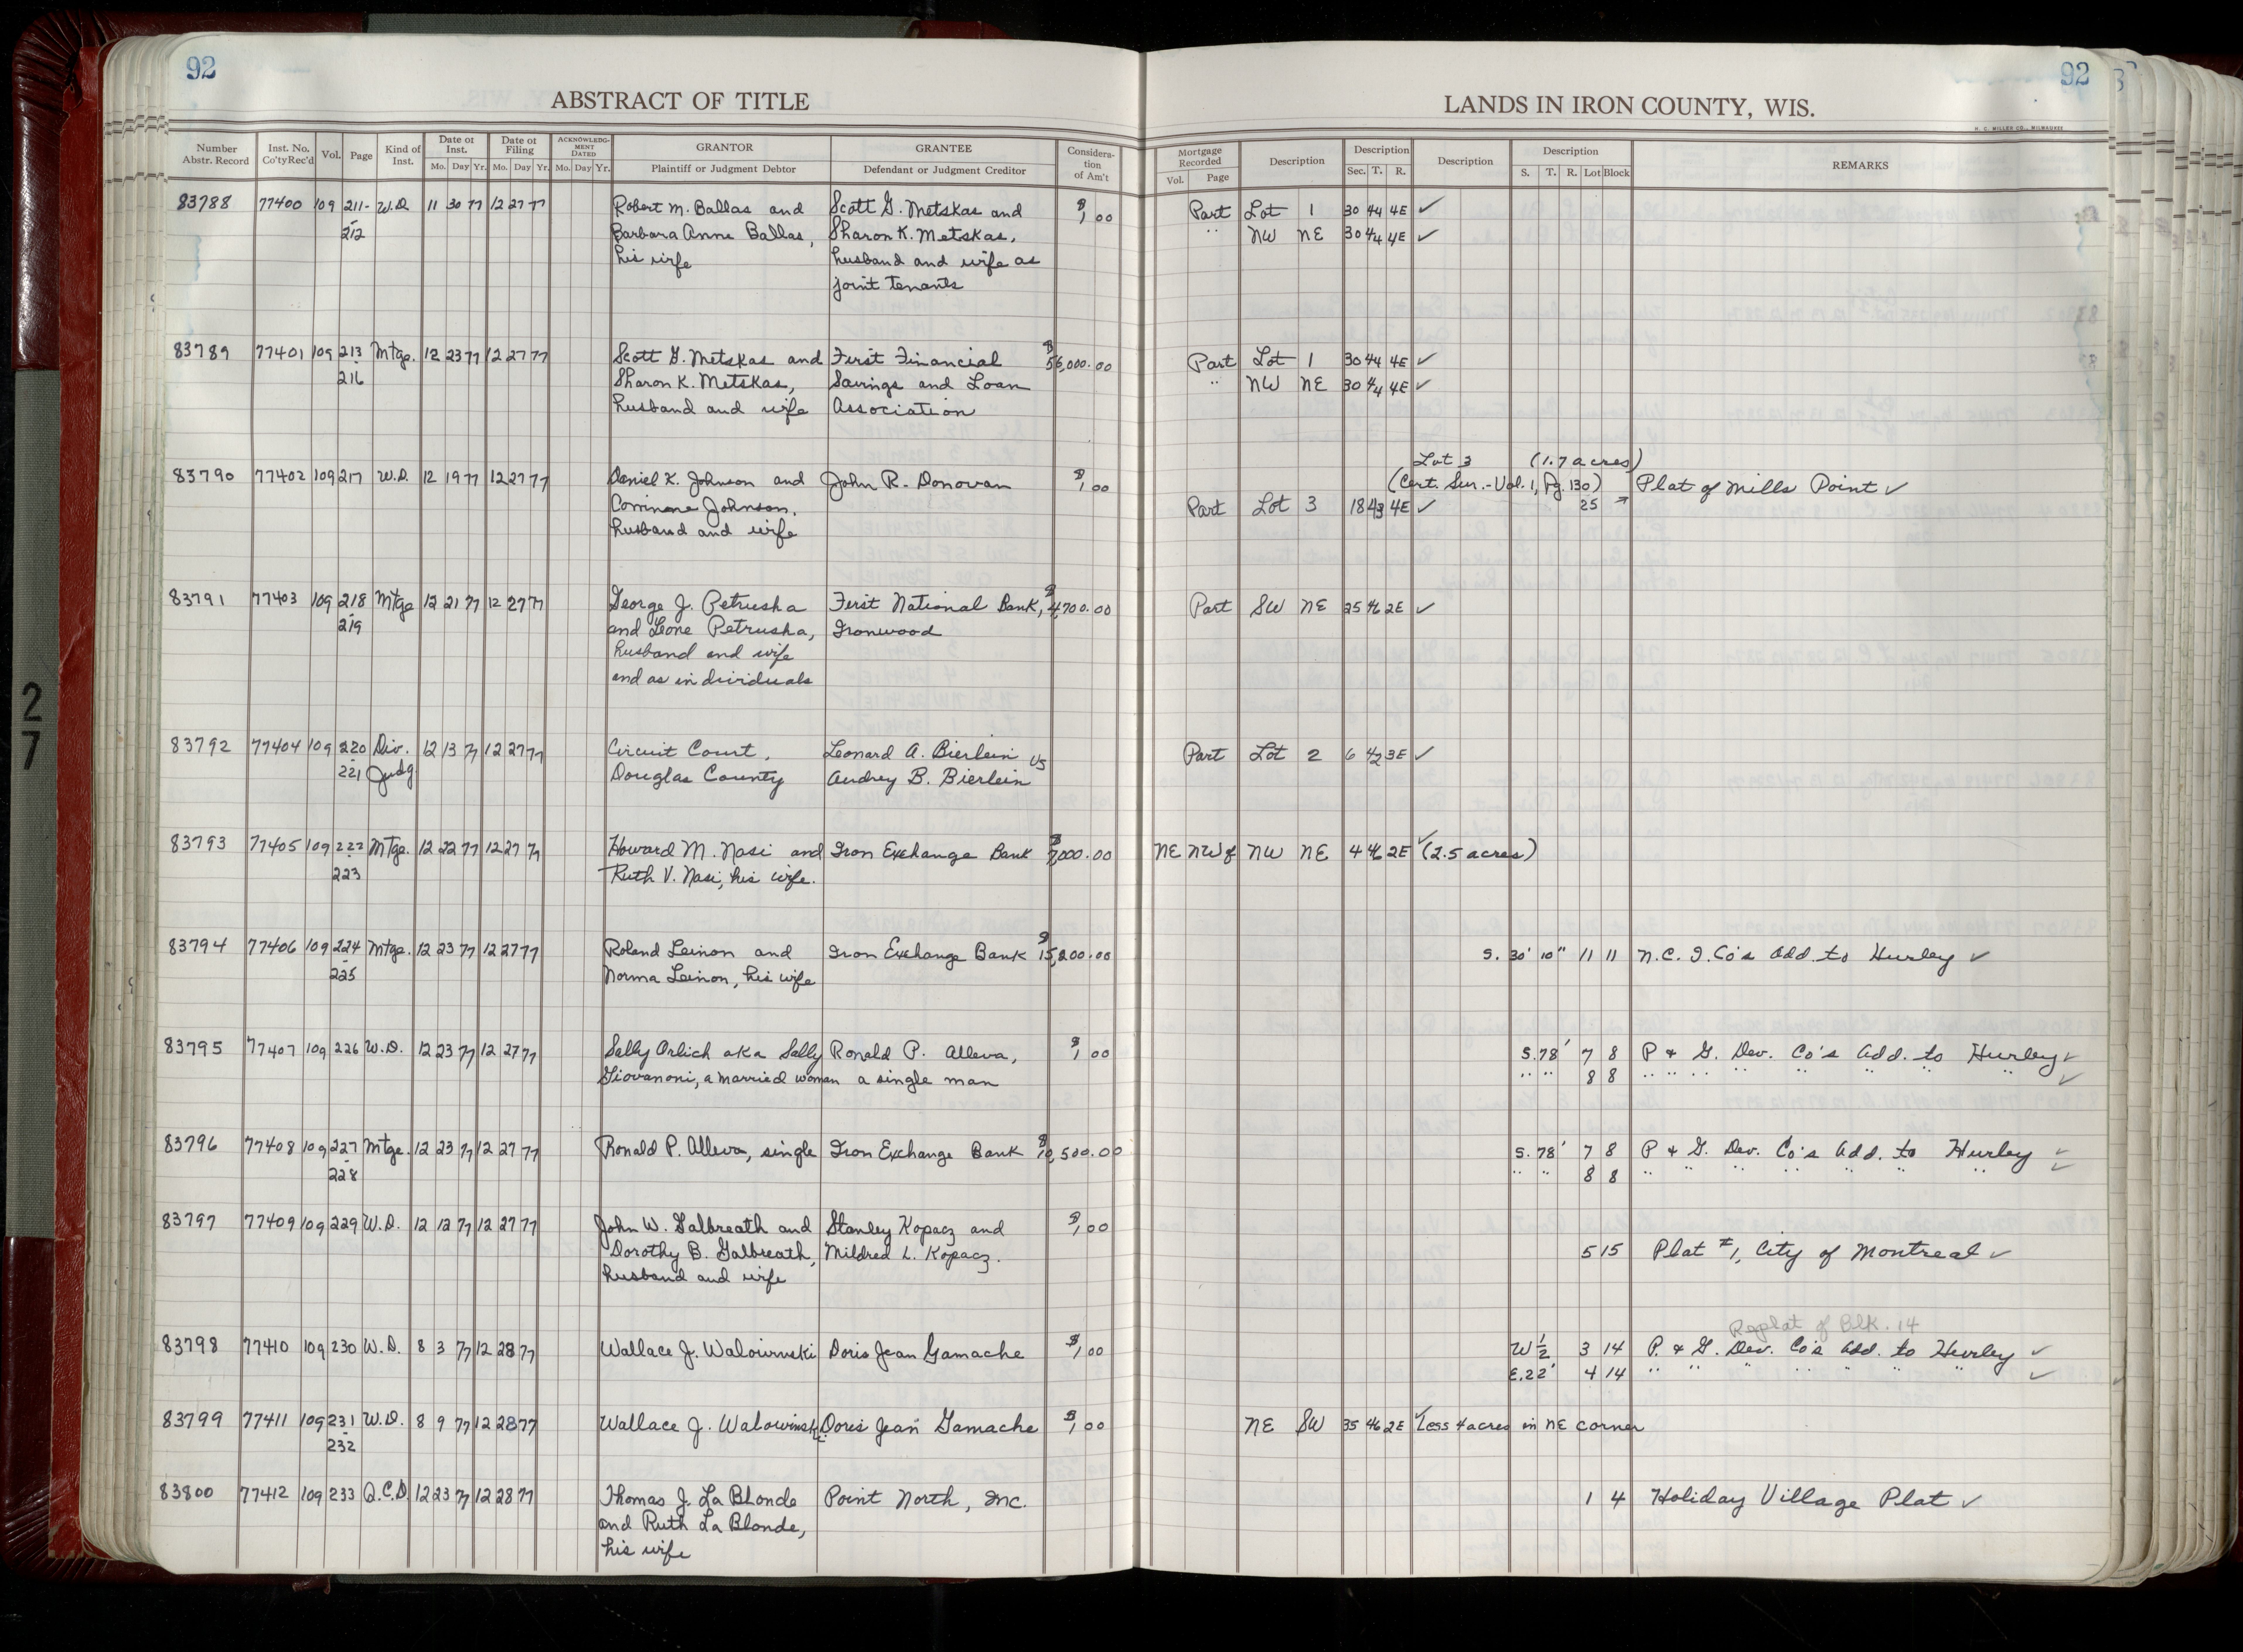 92
92
ABSTRACT OF TITLE
LANDS IN IRON COUNTY, WIS.
H. C. MILLER CO., MILWAUKEE
Number Abstr. Record Inst. No. Co'ty Rec'd Vol. Page Kind of Inst. Date of Inst. Mo. Day Yr. Date of Filing Mo. Day Yr. ACKNOWLEDGMENT DATED Mo. Day Yr. GRANTOR Plaintiff or Judgment Debtor GRANTEE Defendant or Judgment Creditor Consideration of Am't Mortgage Recorded Vol. Page Description Description Sec. T. R. Description Description S. T. R. Lot Block REMARKS
83788 77400 109 211- W.D. 11 30 77 12 27 77 Robert M. Ballas and Scott G. Metskas and $1,00 Part Lot 1 30 44 4E ✓
212 Barbara Anne Ballas, Sharon K. Metskas, " NW NE 30 44 4E ✓
his wife husband and wife as
joint tenants
83789 77401 109 213- Mtge. 12 23 77 12 27 77 Scott G. Metskas and First Financial $56,000.00 Part Lot 1 30 44 4E ✓
216 Sharon K. Metskas, Savings and Loan " NW NE 30 44 4E ✓
husband and wife Association
Lot 3 (1.7 acres)
83790 77402 109 217 W.D. 12 19 77 12 27 77 Daniel K. Johnson and John R. Donovan $1,00 (Cert. Sur.-Vol. 1, Pg. 130) Plat of Mills Point ✓
Corrinne Johnson, Part Lot 3 18 43 4E ✓ 25 →
husband and wife
83791 77403 109 218- Mtge 12 21 77 12 27 77 George J. Petrusha First National Bank, $4,700.00 Part SW NE 25 46 2E ✓
219 and Leone Petrusha, Ironwood
husband and wife
and as individuals
83792 77404 109 220- Div. 12 13 77 12 27 77 Circuit Court, Leonard A. Bierlein vs Part Lot 2 6 42 3E ✓
221 Judg Douglas County Audrey B. Bierlein
83793 77405 109 222- Mtge. 12 22 77 12 27 77 Howard M. Nasi and Iron Exchange Bank $7,000.00 NE NW of NW NE 4 46 2E ✓ (2.5 acres)
223 Ruth V. Nasi, his wife.
83794 77406 109 224- Mtge. 12 23 77 12 27 77 Roland Leinon and Iron Exchange Bank $15,200.00 S. 30' 10" 11 11 N.C.I.Co's Add. to Hurley ✓
225 Norma Leinon, his wife
83795 77407 109 226 W.D. 12 23 77 12 27 77 Sally Orlich aka Sally Ronald P. Alleva, $1,00 S. 78' 7 8 P & G. Dev. Co's Add. to Hurley ✓
Giovanoni, a married woman a single man " " 8 8 " " " " " " " " ✓
83796 77408 109 227- Mtge. 12 23 77 12 27 77 Ronald P. Alleva, single Iron Exchange Bank $10,500.00 S. 78' 7 8 P & G. Dev. Co's Add. to Hurley ✓
228 " " 8 8 " " " " " " " ✓
83797 77409 109 229 W.D. 12 12 77 12 27 77 John W. Galbreath and Stanley Kopacz and $1,00
Dorothy B. Galbreath, Mildred L. Kopacz. 5 15 Plat #1, City of Montreal ✓
husband and wife
Replat of Blk. 14
83798 77410 109 230 W.D. 8 3 77 12 28 77 Wallace J. Walowinski Doris Jean Gamache $1,00 W ½ 3 14 P. & G. Dev. Co's Add. to Hurley ✓
E. 22' 4 14 " " " " " " " ✓
83799 77411 109 231- W.D. 8 9 77 12 28 77 Wallace J. Walowinski Doris Jean Gamache $1,00 NE SW 35 46 2E ✓ Less 4 acres in NE corner
232
83800 77412 109 233 Q.C.D. 12 23 77 12 28 77 Thomas J. La Blonde Point North, Inc. 1 4 Holiday Village Plat ✓
and Ruth La Blonde,
his wife
27